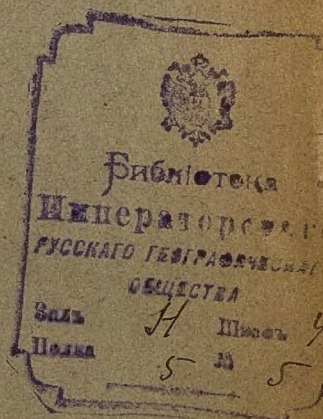 Библіотека
Императорскаг
РУССКАГО ГЕОГРАФИЧЕСКАГ
ОБЩЕСТВА
Залъ H Шкафъ 4
Полка 5 № 5